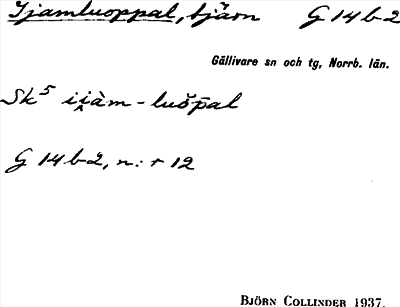 Ijamluoppal, tjärn G 14 b 2
Gällivare sn och tg, Norrb. län.
Sk⁵ ii̯àm-luŏp̄al
G 14 b 2, n:r 12
BJÖRN COLLINDER 1937.